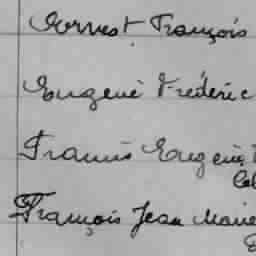 Ernest François
Eugène Fréderic
Francis Eugène
François Jean Marie